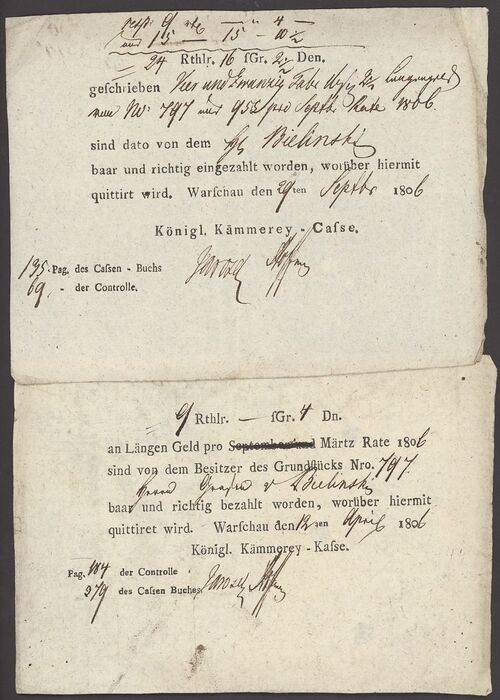 9 — " 4
und 15 — 15 — 10½
24 Rthlr. 16 fGr. 2½ Den.
geschrieben Vier und Zwanzig
von No: 797 und 958 pro Septbr Rate 1806.
sind dato von dem Bielinski
baar und richtig eingezahlt worden, worüber hiermit
quittirt wird. Warschau den 29ten Septbr 1806
Königl. Kämmerey - Casse.
135. Pag. des Caſsen - Buchs
69, - der Controlle.
9 Rthlr. — fGr. 4 Dn.
an Längen Geld pro September und Märtz Rate 1806
sind von dem Besitzer des Grundstücks Nro. 797.
Herrn Grafen v Bielinski
baar und richtig bezahlt worden, worüber hiermit
quittiret wird. Warschau den 12ten April 1806
Königl. Kämmerey - Kaſse.
Pag. 184 der Controlle
279 des Caſsen Buches